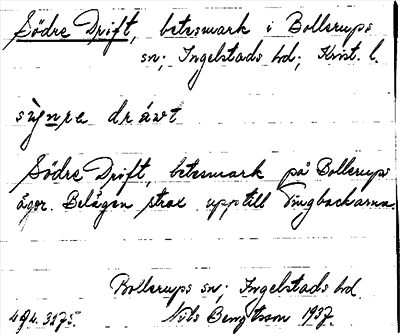 Södre Drift, betesmark i Bollerups
sn; Ingelstads hd; Krist. l.
drávt
Södre Drift, betesmark på Bollerups
ägor. Belägen strax upp till Tingbackarna.
Bollerups sn; Ingelstads hd.
494.3275. Nils Bengtsson 1937.